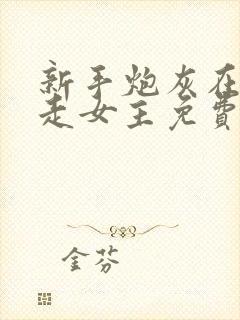 新手炮灰在
走女王免費
金芬